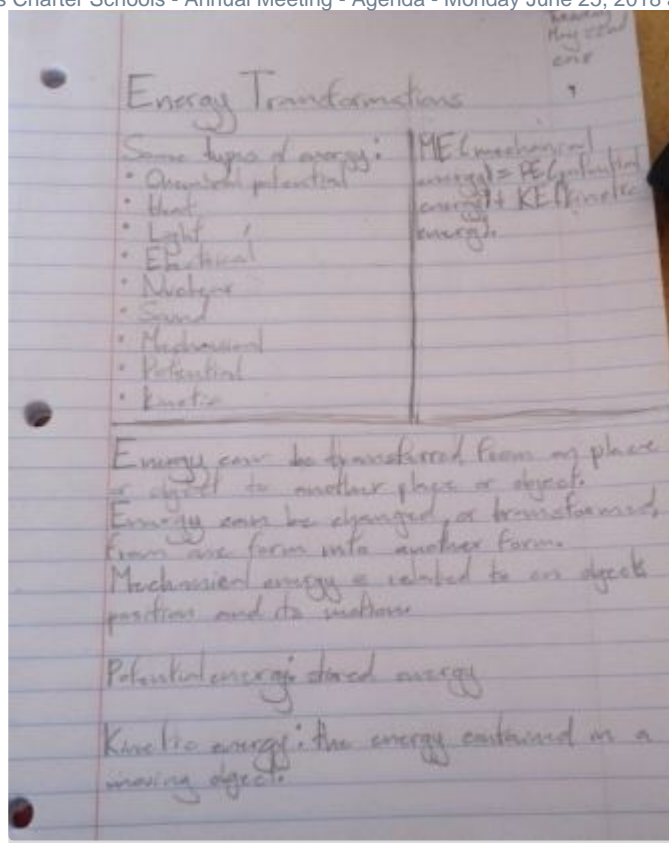 s Charter Schools - Annual Meeting - Agenda - Monday June 25, 2018
May 22nd
Energy Transformations
Some types of energy:
• Chemical potential
• Heat
• Light
• Electrical
• Nuclear
• Sound
• Mechanical
• Potential
• Kinetic
ME (mechanical
energy) = PE (potential
energy) + KE (kinetic
energy).
Energy can be transferred from place
or object to another place or object.
Energy can be changed, or transformed,
from one form into another form.
Mechanical energy is related to an objects
position and its motion
Potential energy: stored energy
Kinetic energy: the energy contained in a
moving object.